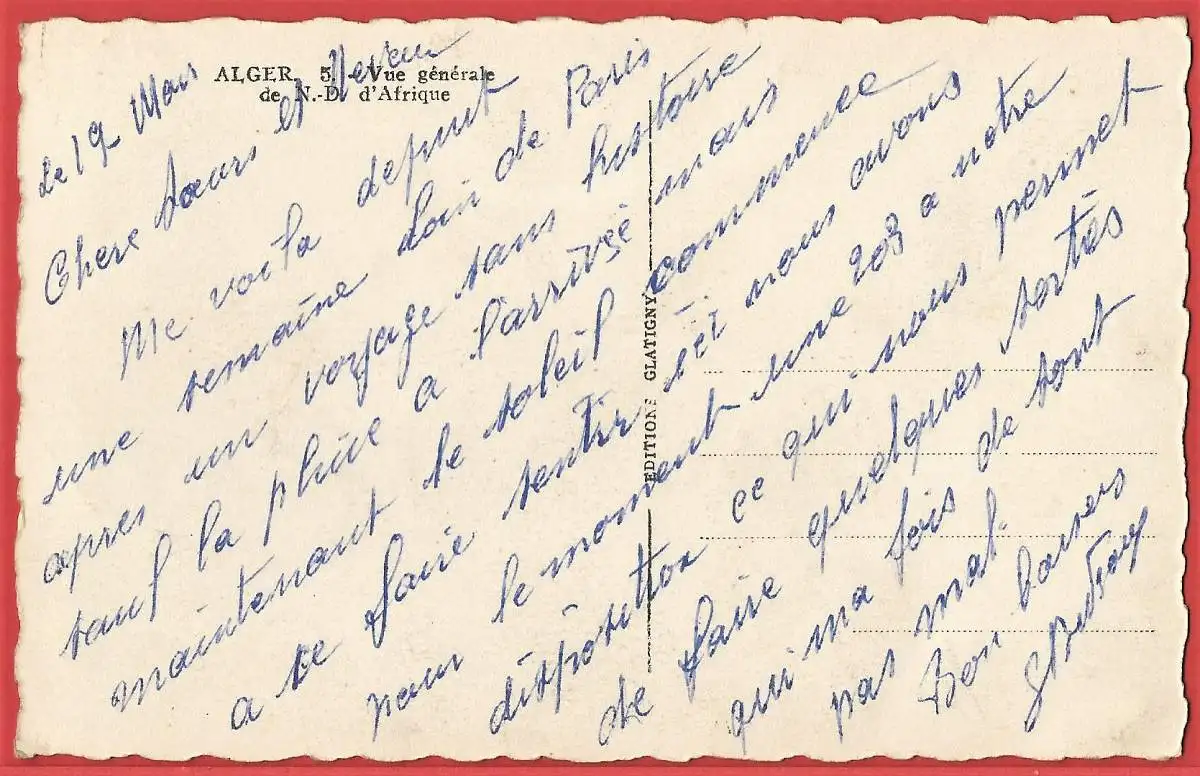 ALGER. 5. - Vue générale
de N.-D. d'Afrique
EDITIONS GLATIGNY
Le 19 Mars
Chere Sœurs et Neveu
Me voila depuit
une semaine loin de Paris
apres un voyage sans histoire
sauf la pluie a l'arrivée mais
maintenant le soleil commence
a se faire sentir ici nous avons
pour le moment une 203 a notre
disposition ce qui nous permet
de faire quelques sortés
qui ma fois de sont
pas mal.
Bon baisers